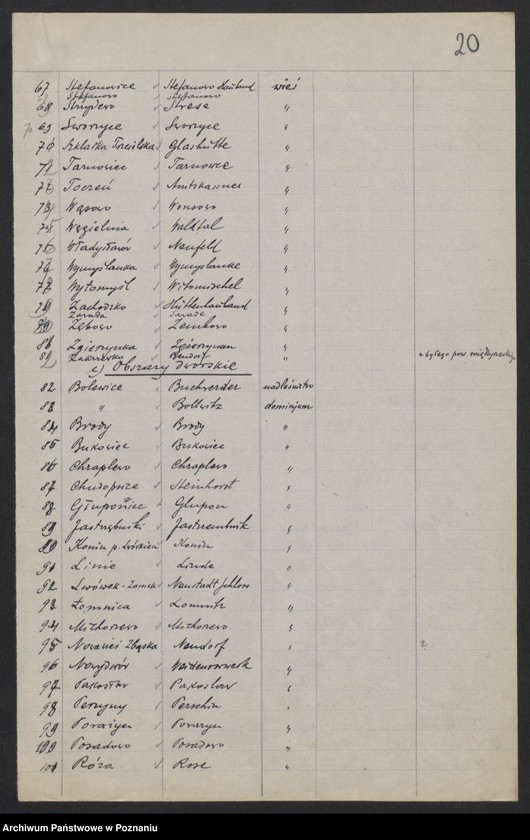 20
67 Stefanowice Stefanowo Hauland wieś
Stefanowo Stefanowo
68 Strużewo Strese "
69 Sworzyce Sworzyce "
70 Szklarka Trzcielska Glashütte "
71 Tarnowiec Tarnowce "
72 Toczeń Amtskassner "
73 Wąsowo Wonsowo "
74 Węgielnia Walktal "
75 Władysławów Neufeld "
76 Wymyślanka Wymyslanke "
77 Wytomyśl Witomischel "
78 Zachodzko Hüttenhauland "
Zawada Zawade
79 Zębowo Zembowo "
80 Zgierzynka Zgierzynka "
81 Zakrzewko Neudorf " z byłego pow. międzyrzeckiego
c) Obszary dworskie
82 Bolewice Buchwerder nadleśnictwo
83 " Bollwitz dominjum
84 Brody Brody "
85 Bukowiec Bukowiec "
86 Chraplewo Chraplewo "
87 Chudopsice Steinhorst "
88 Głuponie Glupon "
89 Jastrzębniki Jastrzembnik "
90 Konin p. Lwówkiem Konin "
91 Linie Linde "
92 Lwówek-Zamek Neustadt Schloss "
93 Łomnica Lomnitz "
94 Michorzewo Michorzewo "
95 Nowawieś Zbąska Neudorf " ?
96 Nowydwór "
97 Pakosław Pakoslaw "
98 Perzyny Perschin "
99 Porażyn Porazyn "
100 Posadowo Posadowo "
101 Róża Rose "
Archiwum Państwowe w Poznaniu